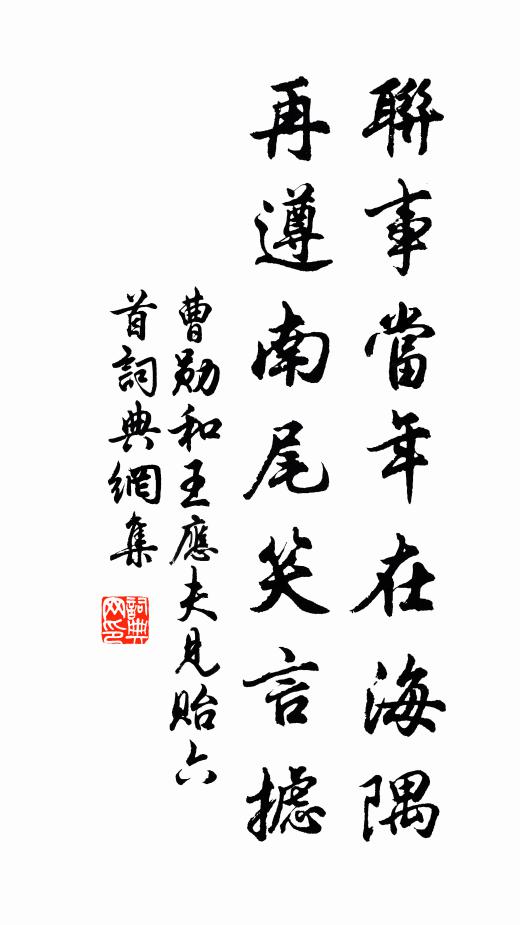 聯事當年在海隅
再遵南尾笑言摅
曹勛和王應夫見貽六
首詞典網集
詞典
网印